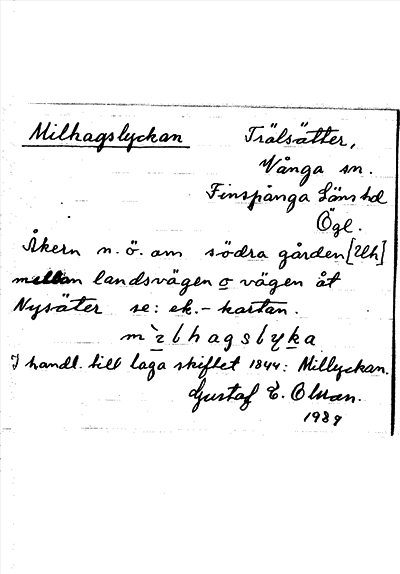 Milhagslyckan
Trälsätter,
Vånga sn.
Finspånga Läns hd
Ögl.
Åkern n.ö. om södra gården
mellan landsvägen o vägen åt
Nysäter se: ek.-kartan.
milhagslyka
I handl. till laga skiftet 1844: Millyckan.
Gustaf E.